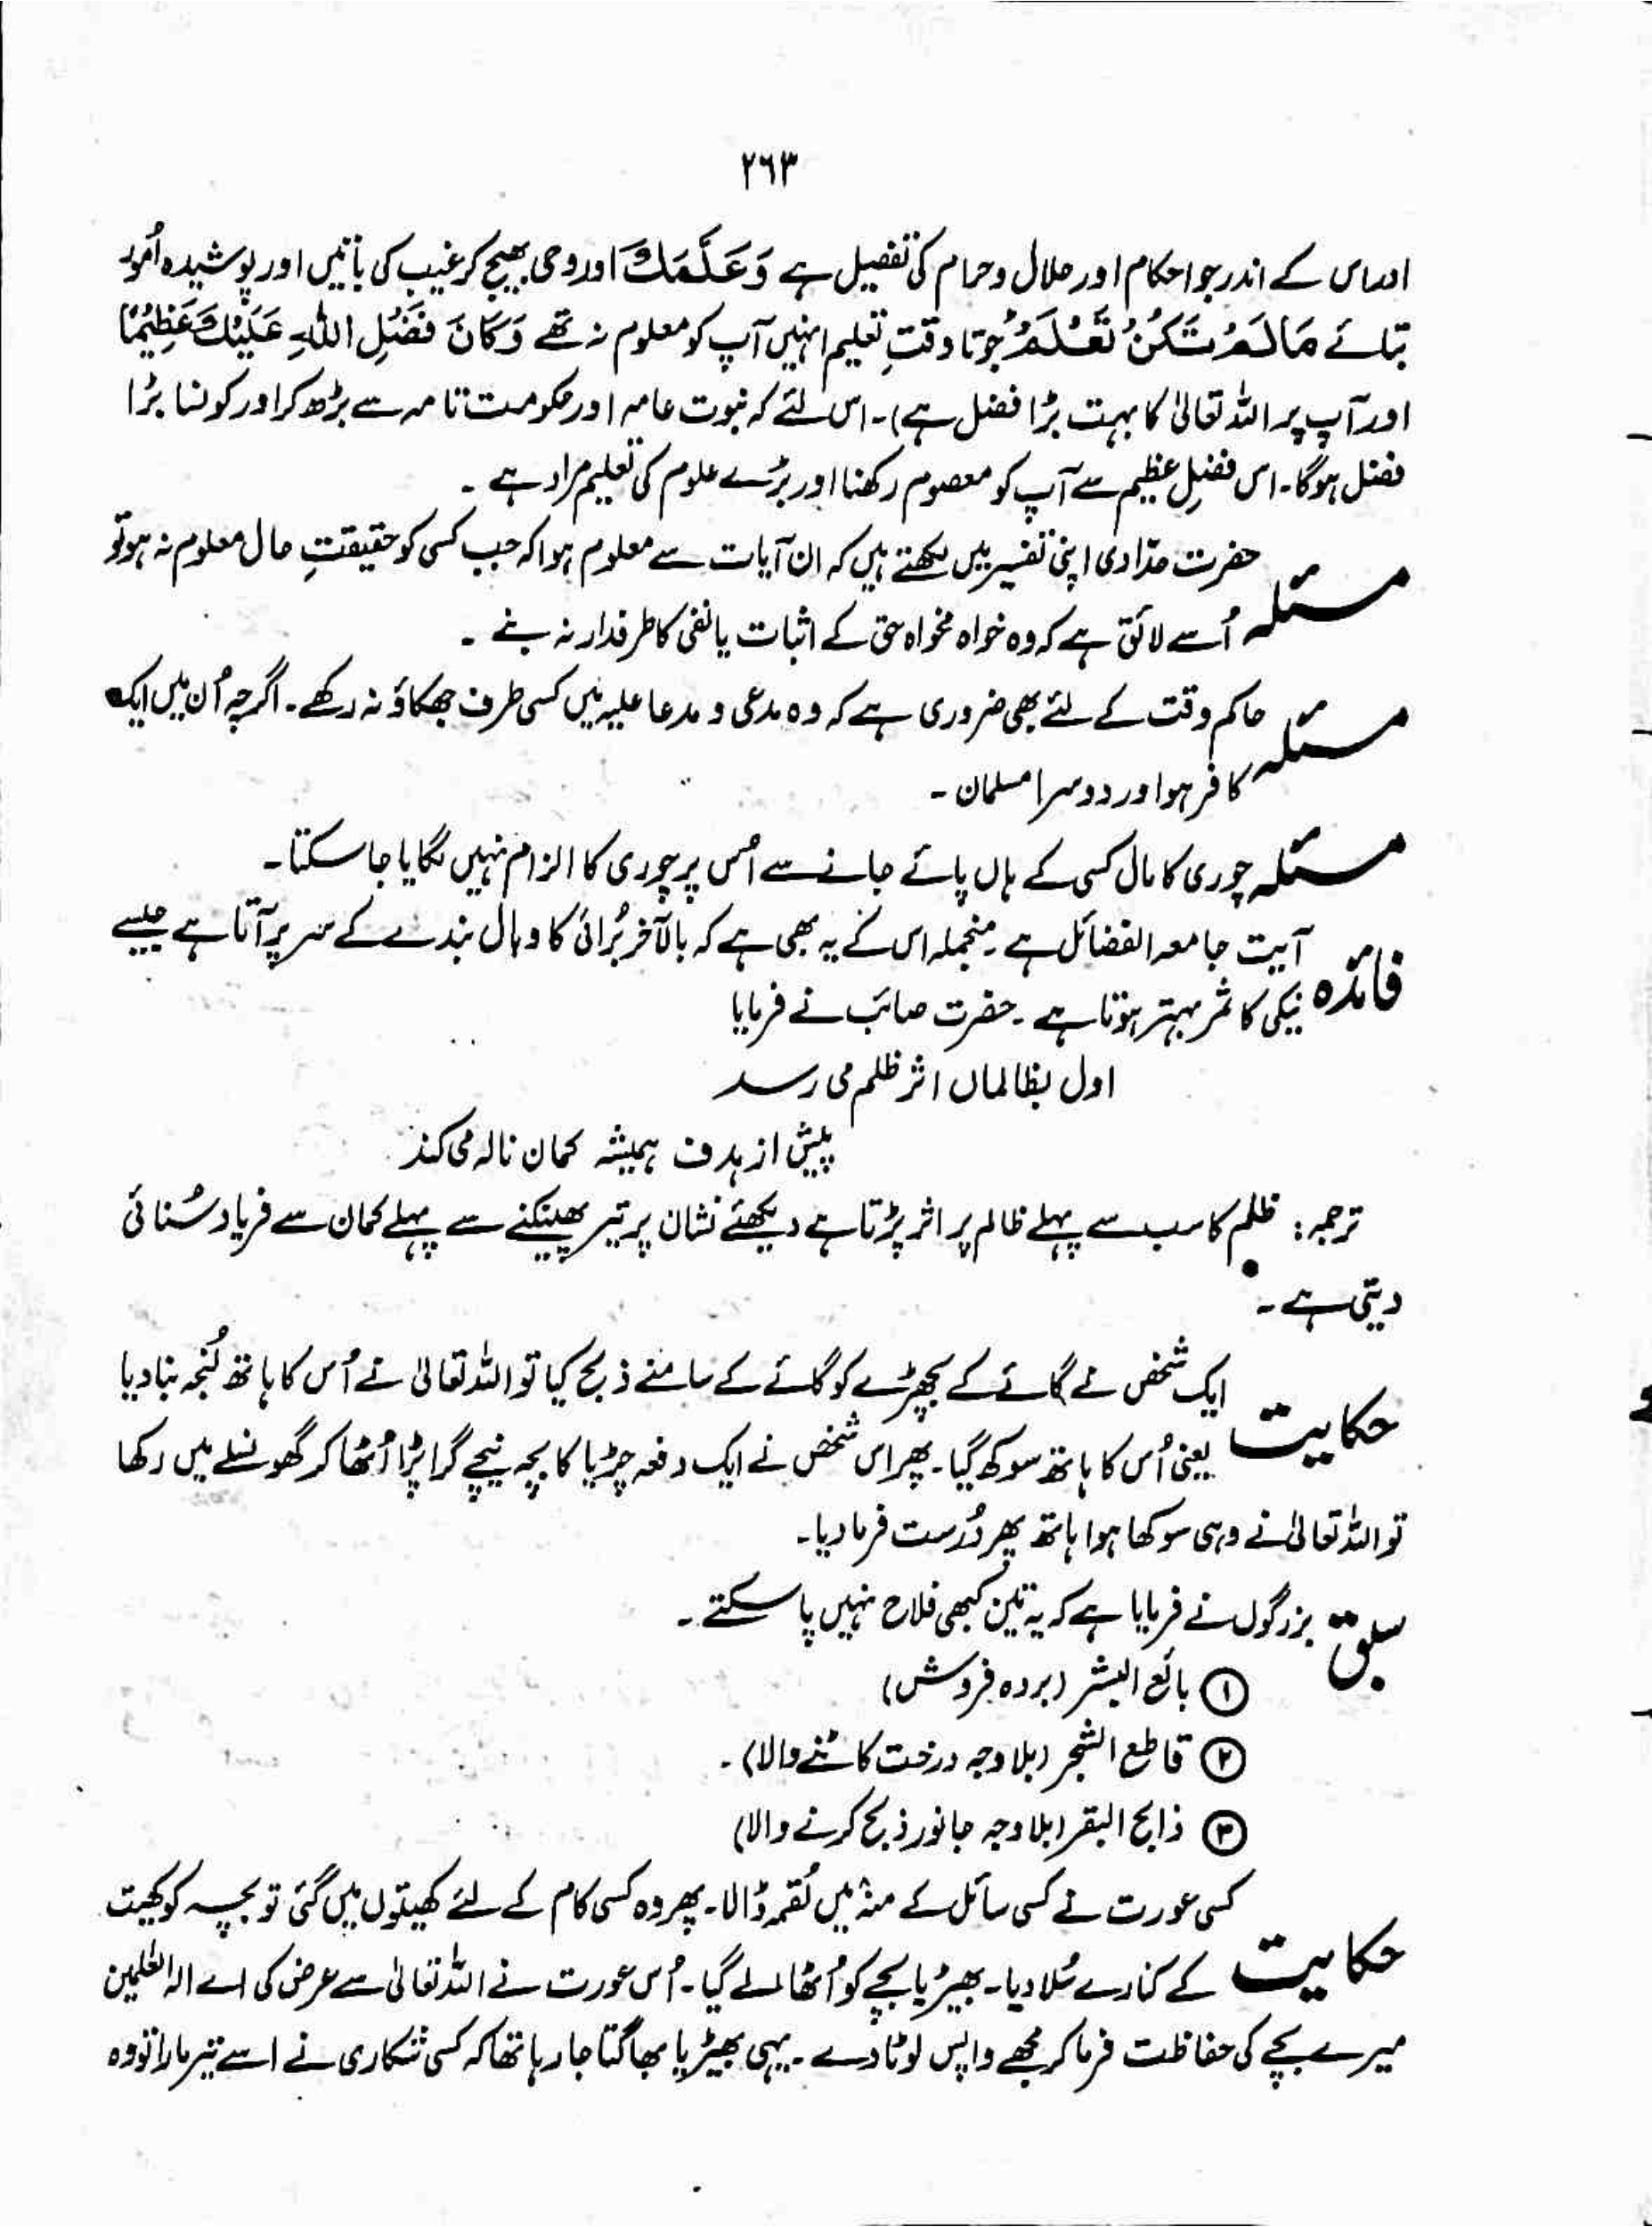 ٢٦٣
اور اس کے اندر جو احکام اور حلال و حرام کی تفصیل ہے وَعَلَّمَكَ اور وحی بھیج کر غیب کی باتیں اور پوشیدہ اُمور
بتائے مَا لَمْ تَكُنْ تَعْلَمُ جو تا وقتِ تعلیم انہیں آپ کو معلوم نہ تھے وَكَانَ فَضْلُ اللهِ عَلَيْكَ عَظِيْمًا
اور آپ پر اللہ تعالیٰ کا بہت بڑا فضل ہے)۔ اس لئے کہ نبوت عامہ اور حکومت تامہ سے بڑھ کر اور کونسا بڑا
فضل ہوگا۔ اس فضلِ عظیم سے آپ کو معصوم رکھنا اور بڑے علوم کی تعلیم مراد ہے ۔
مسئلہ حضرت حدّادی اپنی تفسیر میں لکھتے ہیں کہ ان آیات سے معلوم ہوا کہ جب کسی کو حقیقتِ حال معلوم نہ ہو تو
اُسے لائق ہے کہ وہ خواہ مخواہ حق کے اثبات یا نفی کا طرفدار نہ بنے ۔
مسئلہ حاکم وقت کے لئے بھی ضروری ہے کہ وہ مدعی و مدعا علیہ میں کسی طرف جھکاؤ نہ رکھے۔ اگرچہ اُن میں ایک
کافر ہو اور دوسرا مسلمان ۔
مسئلہ چوری کا مال کسی کے ہاں پائے جانے سے اُس پر چوری کا الزام نہیں لگایا جا سکتا ۔
فائدہ آیت جامعہ الفضائل ہے ۔ منجملہ اس کے یہ بھی ہے کہ بالآخر بُرائی کا وبال بندے کے سر پر آتا ہے جیسے
نیکی کا ثمر بہتر ہوتا ہے ۔ حضرت صائب نے فرمایا
اول بظالماں اثر ظلم می رسد
پیش از ہدف ہمیشہ کمان نالہ می کند
ترجمہ : ظلم کا سب سے پہلے ظالم پر اثر پڑتا ہے دیکھئے نشان پر تیر پھینکنے سے پہلے کمان سے فریاد سُنائی
دیتی ہے ۔
حکایت ایک شخص نے گائے کے بچھڑے کو گائے کے سامنے ذبح کیا تو اللہ تعالیٰ نے اُس کا ہاتھ لُنجہ بنا دیا
یعنی اُس کا ہاتھ سوکھ گیا۔ پھر اس شخص نے ایک دفعہ چڑیا کا بچہ نیچے گرا پڑا اُٹھا کر گھونسلے میں رکھا
تو اللہ تعالیٰ نے وہی سوکھا ہوا ہاتھ پھر دُرست فرما دیا۔
سبق بزرگوں نے فرمایا ہے کہ یہ تین کبھی فلاح نہیں پا سکتے ۔
① بائع البشر (بردہ فروش)
② قاطع الشجر (بلا وجہ درخت کاٹنے والا) ۔
③ ذابح البقر (بلا وجہ جانور ذبح کرنے والا)
حکایت کسی عورت نے کسی سائل کے منہ میں لُقمہ ڈالا۔ پھر وہ کسی کام کے لئے کھیتوں میں گئی تو بچہ کو کھیت
کے کنارے سُلا دیا۔ بھیڑیا بچے کو اُٹھا لے گیا۔ اُس عورت نے اللہ تعالیٰ سے عرض کی اے الہ العٰلمین
میرے بچے کی حفاظت فرما کر مجھے واپس لوٹا دے ۔ یہی بھیڑیا بھاگتا جا رہا تھا کہ کسی شکاری نے اسے تیر مارا تو وہ